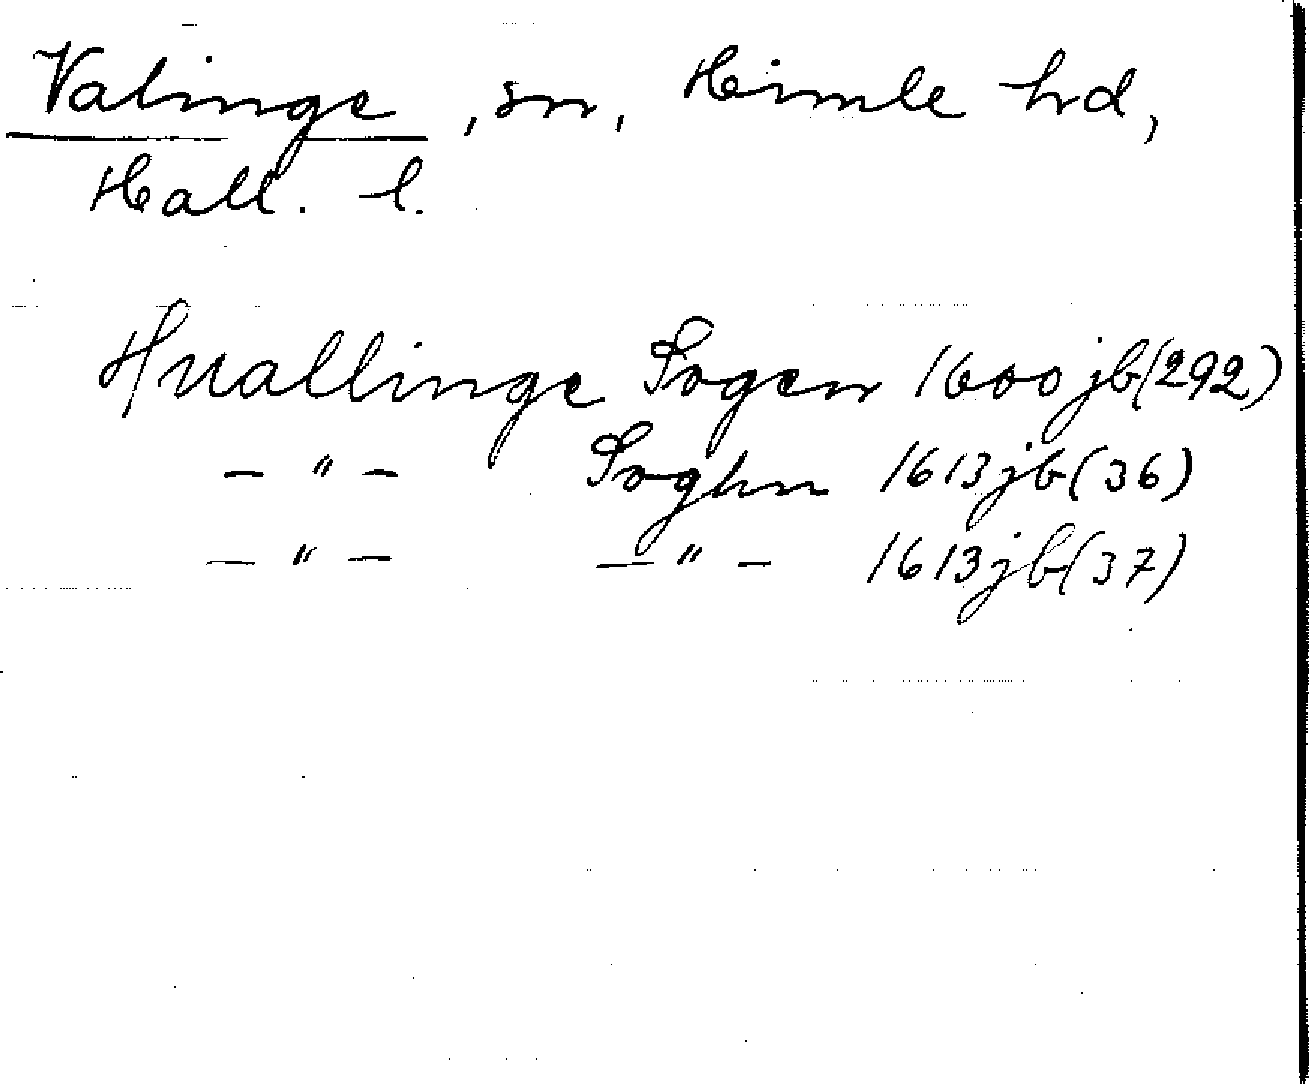 Valinge, sn, Himle hd,
Hall. l.
Huallinge Sogen 1600 jb(292)
— " — Soghn 1613 jb(36)
— " — — " — 1613 jb(37)